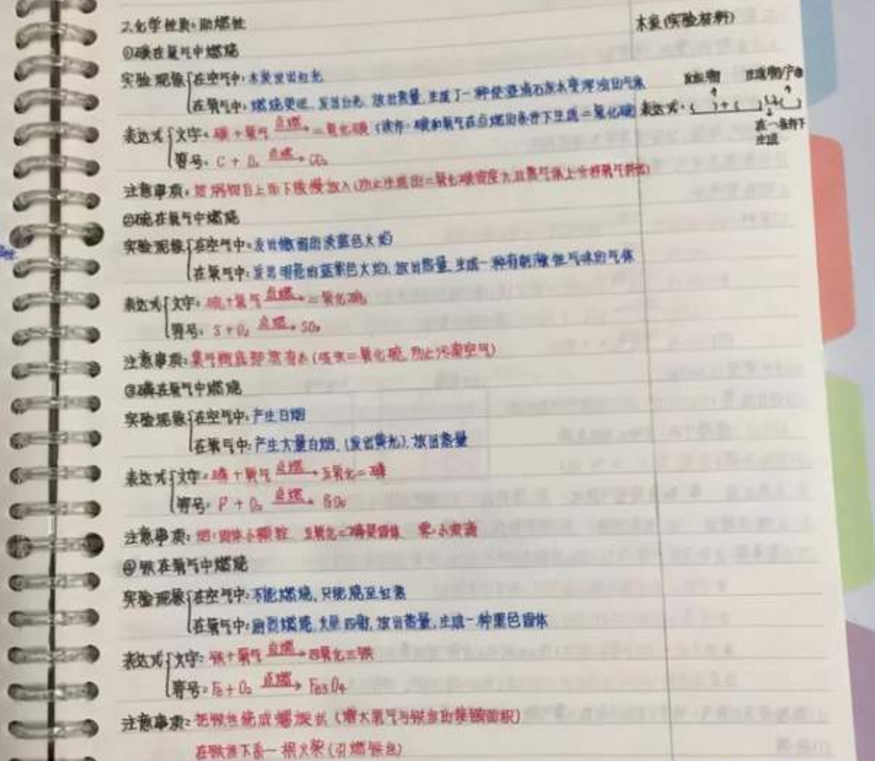 2.化学性质:助燃性
木炭(实验材料)
①碳在氧气中燃烧
实验现象 在空气中:木炭发出红光
在氧气中:燃烧更旺,发出白光,放出热量,生成了一种使澄清石灰水变浑浊的气体
表达式 文字:碳+氧气 点燃→ 二氧化碳 (读作:碳和氧气在点燃的条件下生成二氧化碳)
表达式:( )+( )→( )
反应物 生成物/产物
在一条件下
生成
符号:C + O₂ 点燃→ CO₂
注意事项:坩埚钳自上而下缓慢放入(防止生成的二氧化碳密度大且
②硫在氧气中燃烧
实验现象 在空气中:发出微弱的淡蓝色火焰
在氧气中:发出明亮的蓝紫色火焰,放出热量,生成一种有刺激性气味的气体
表达式 文字:硫+氧气 点燃→ 二氧化硫
符号:S + O₂ 点燃→ SO₂
注意事项:集气瓶底部放有水(吸收二氧化硫,防止污染空气)
③磷在氧气中燃烧
实验现象 在空气中:产生白烟
在氧气中:产生大量白烟,(发出黄光),放出热量
表达式 文字:磷+氧气 点燃→ 五氧化二磷
符号:P + O₂ 点燃→ P₂O₅
注意事项:烟:固体小颗粒 五氧化二磷是固体
④铁在氧气中燃烧
实验现象 在空气中:不能燃烧,只能烧至红热
在氧气中:剧烈燃烧,火星四射,放出热量,生成一种黑色固体
表达式 文字:铁+氧气 点燃→ 四氧化三铁
符号:Fe + O₂ 点燃→ Fe₃O₄
注意事项:把铁丝绕成螺旋状(增大氧气与铁丝的接触面积)
在铁丝下系一根火柴(引燃铁丝)